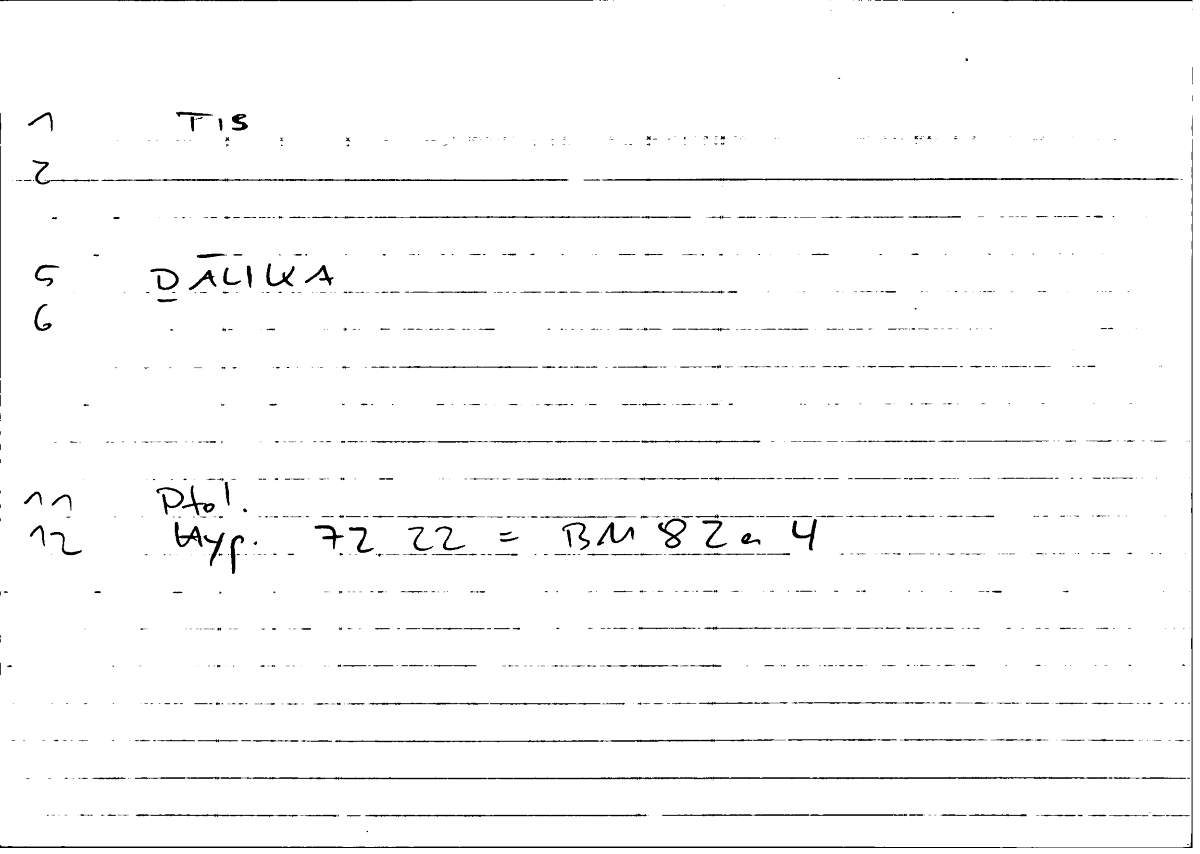 1 TIS
2
5 ḎĀLIKA
6
11 Ptol.
12 Hyp. 72 22 = BM 82 a 4